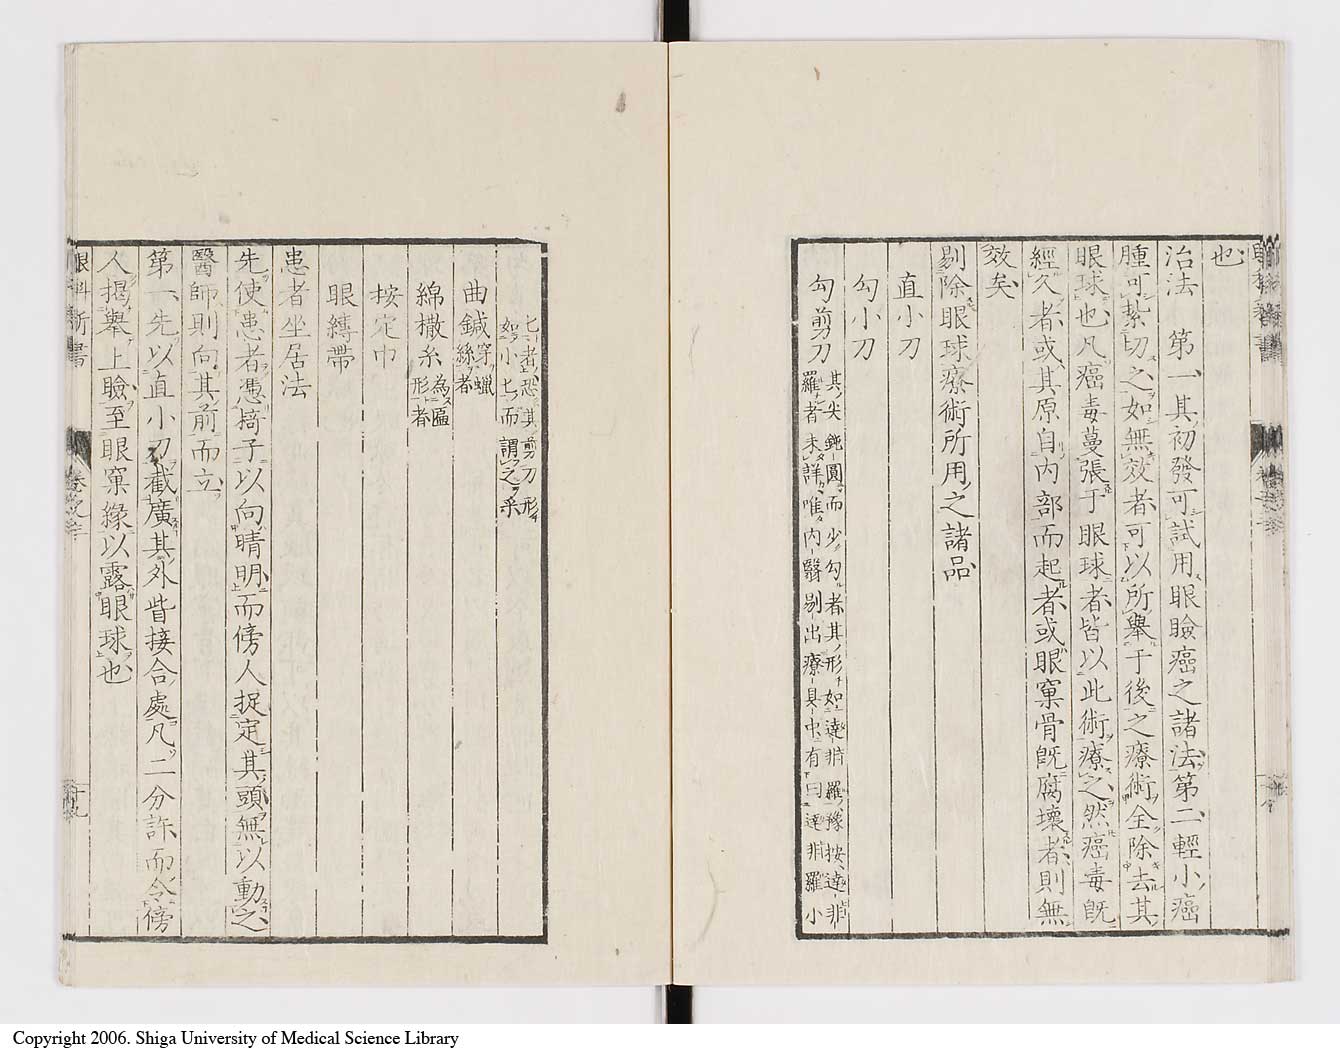 也
治法 第一其初發可試用眼瞼癌之諸法第二輕小癌
腫可紮切之如無效者可以所舉于後之療術全除去其
眼球也凡癌毒蔓張于眼球者皆以此術療之然癌毒既
經久者或其原自内部而起者或眼窠骨既腐壞者則無
效矣
剔除眼球療術所用之諸品
直小刀
勾小刀
勾剪刀
其尖鈍圓而少勾者其形如達非羅豫按達非
羅者未詳唯内醫剔出療具中有曰達非羅小
匕者恐其剪刀形
如小匕而謂之乎
曲鍼穿蠟
絲者
綿撒糸為匾
形者
按定巾
眼縛帶
患者坐居法
先使患者憑椅子以向晴明而傍人捉定其頭無以動之
醫師則向其前而立
第一先以直小刀截廣其外眥接合處凡二分許而令傍
人揭舉上瞼至眼窠緣以露眼球也
眼科新書
卷之
十九
Copyright 2006. Shiga University of Medical Science Library